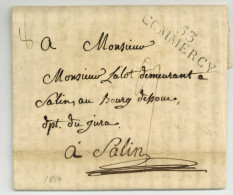 53
COMMERCY
A Monsieur
Monsieur Lalot demeurant a
Salin, au Bourg dessou,
dpt. du jura,
à Salin